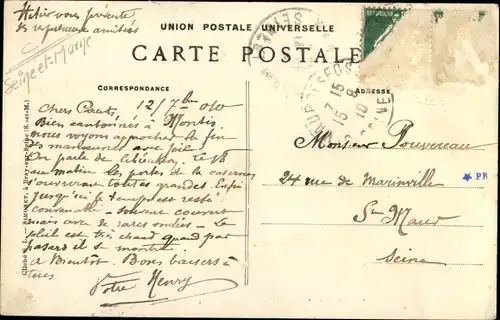 Hélier vous présente
ses respectueuses amitiés
Seine et Marne
UNION POSTALE UNIVERSELLE
CARTE POSTALE
CORRESPONDANCE
ADRESSE
12/7bre 010
Chers Parents,
Bien cantonnés à Montis
nous voyons approcher la fin
des manœuvres avec joie.
On parle de libération. le 18
au matin les portes de la caserne
s'ouvriront toutes grandes. Enfin
jusqu'ici la température est restée
convenable - souvent couvert
mais avec de rares ondées - Le
soleil est très chaud quand par
hasard il se montre
à Bientôt. Bons baisers à
tous
Votre Henry
Monsieur Pouvereau
24 rue de Marinville
St Maur
Seine
* PB
REPUBLIQUE
17-15
15-9
10
Cliché S. L. - SIMONET, à Bray-sur-Seine (S.-et-M.)